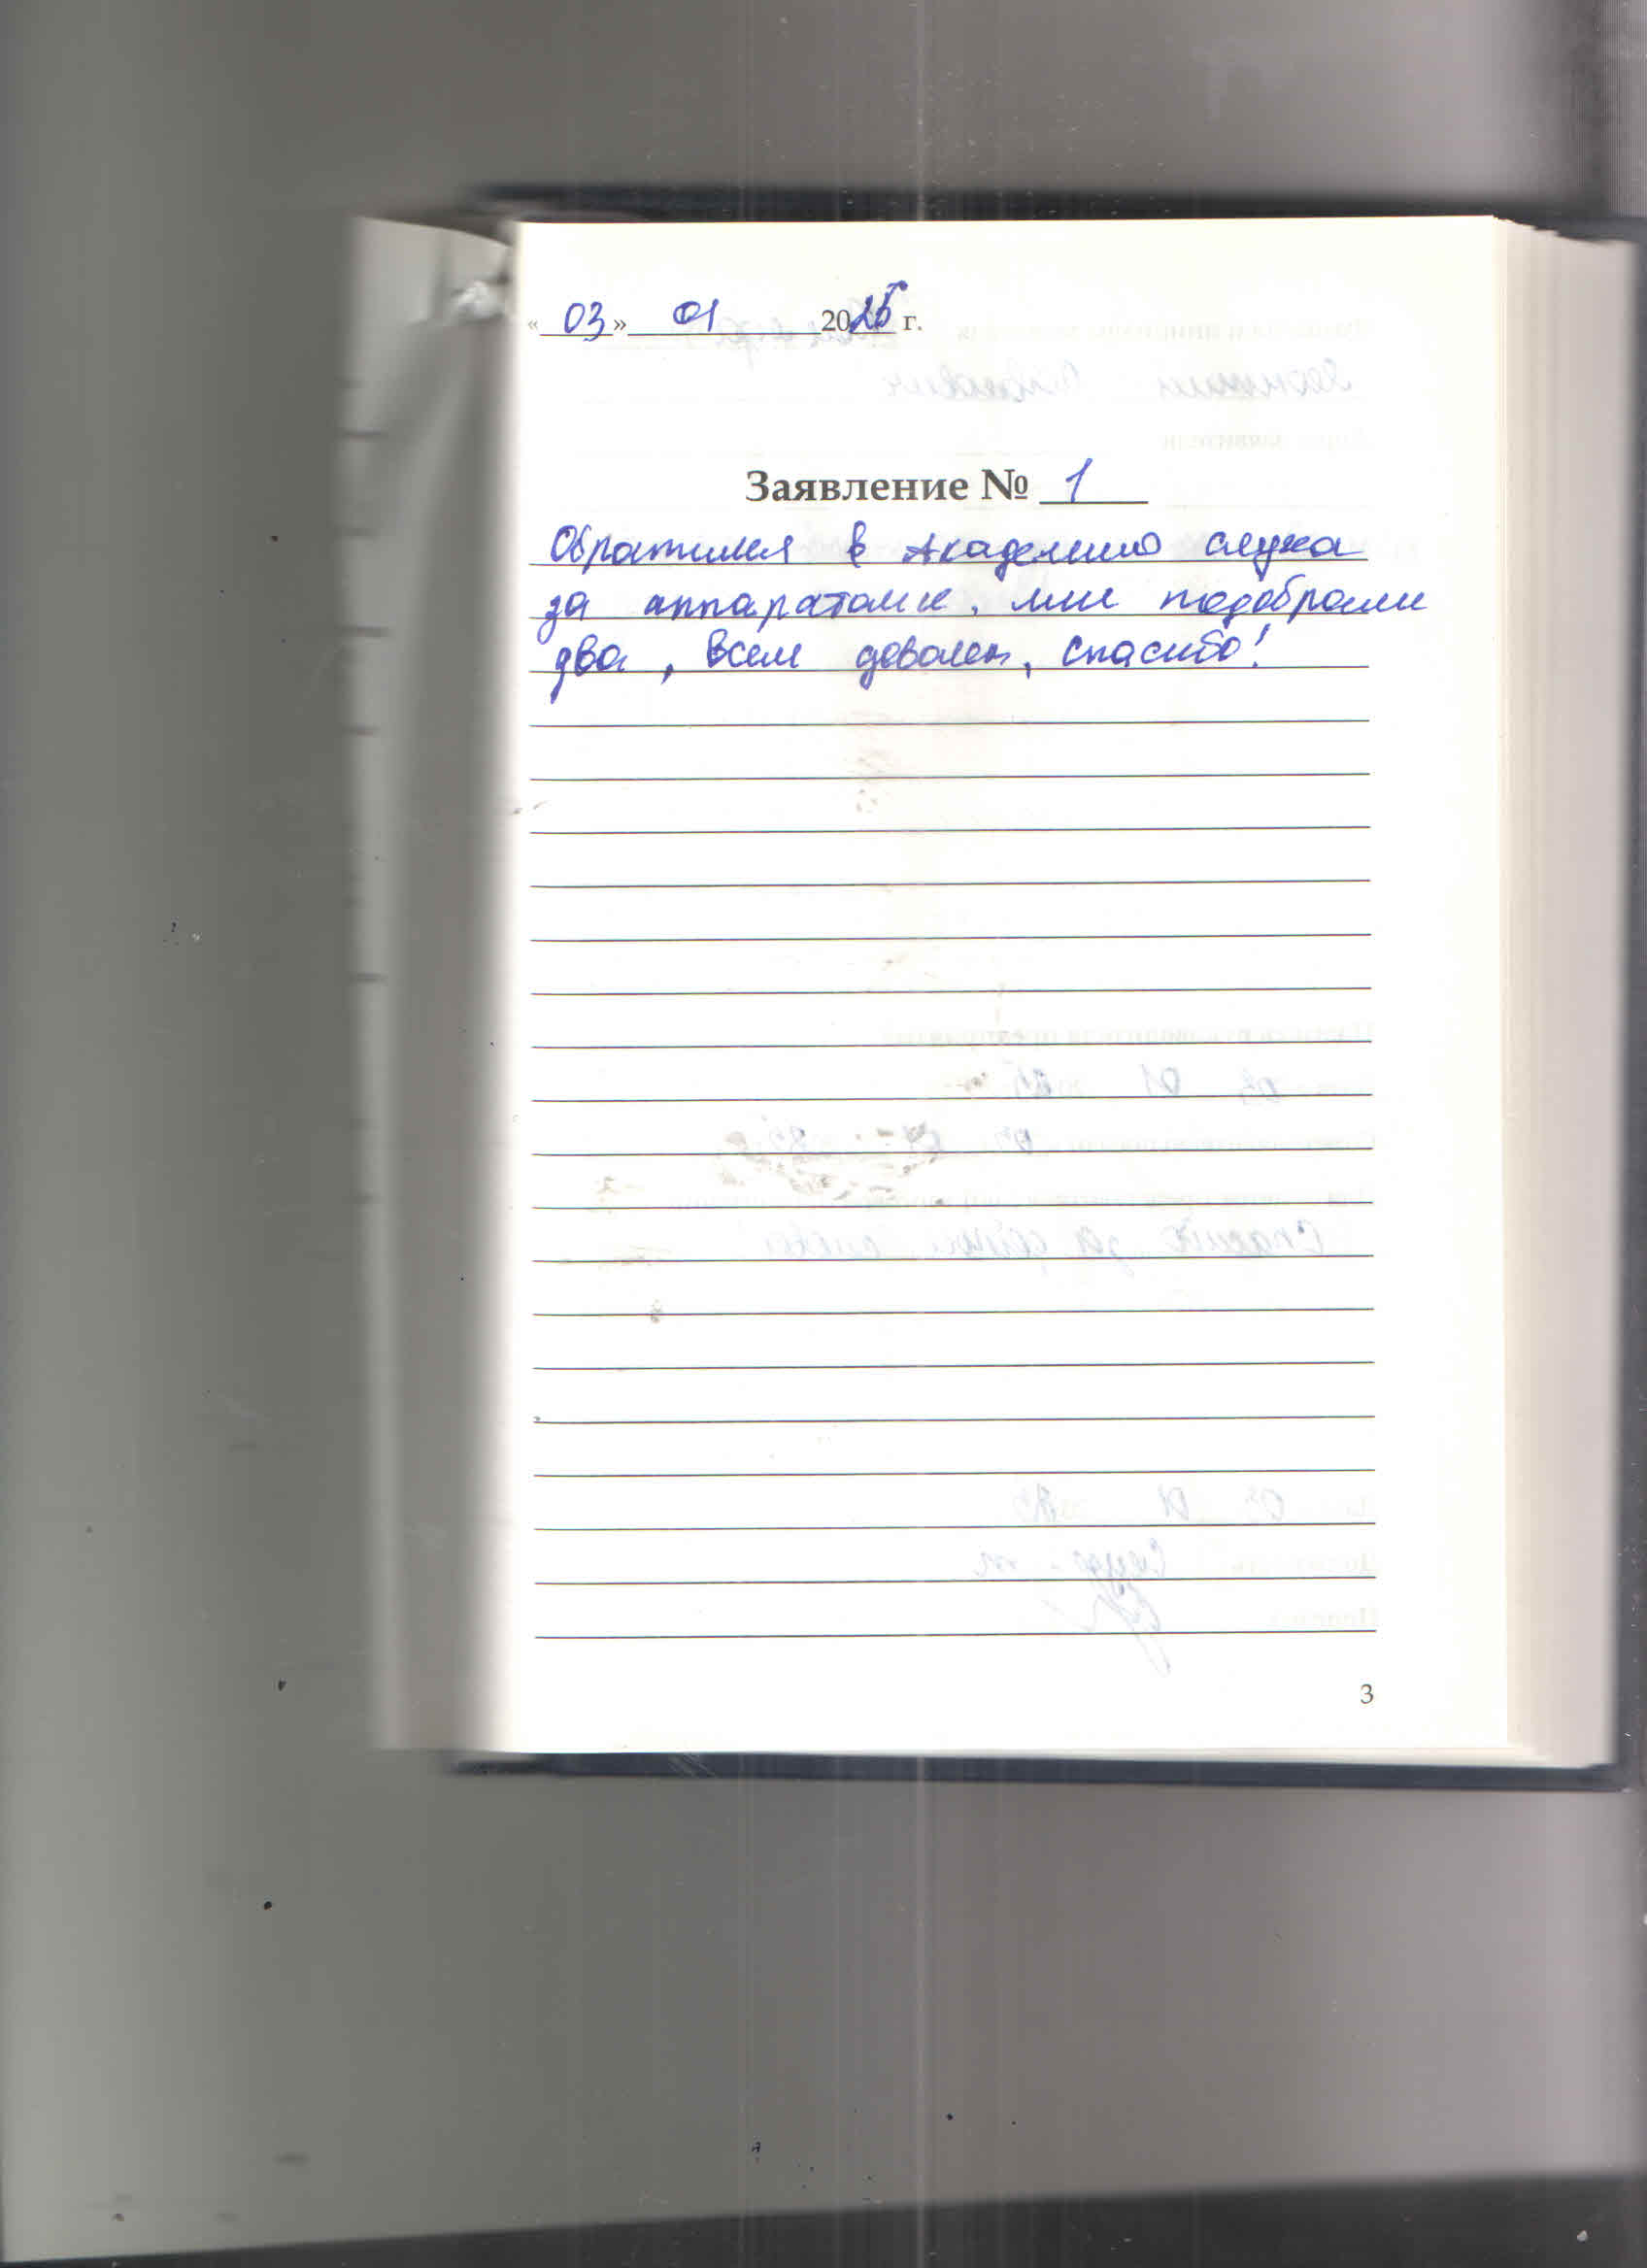 « 03 » 01 2025 г.
Заявление № 1
Обратился в Академию слуха
за аппаратами, мне подобрали
два, всем доволен, спасибо!
3